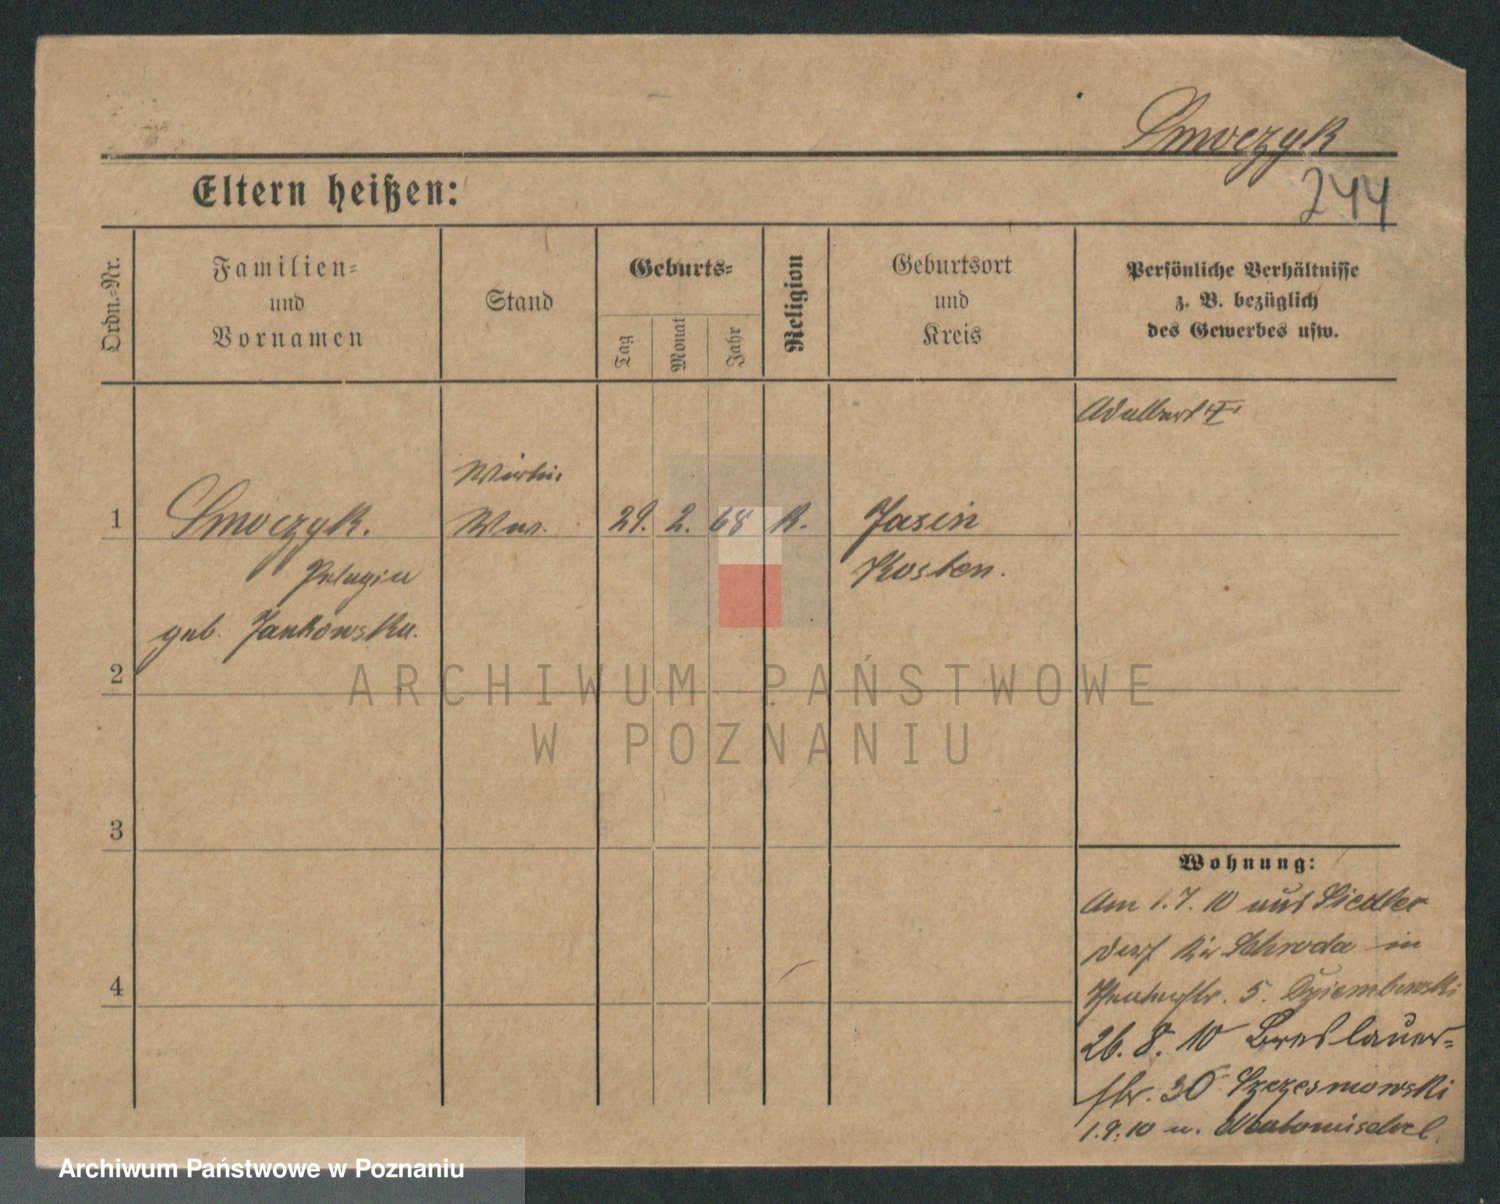 Smoczyk
244
Eltern heißen:
Ordn.-Nr.
Familien-
und
Vornamen
Stand
Geburts-
Tag
Monat
Jahr
Religion
Geburtsort
und
Kreis
Persönliche Verhältnisse
z. B. bezüglich
des Gewerbes usw.
Adalbert
1
Smoczyk.
Pelagia
geb. Jankowska.
29. 2. 68 K.
Jasin
Kosten.
2
3
4
Wohnung:
Am 1.7.10 aus Siedler
dorf Kr Schroda in
5. Dziembowski
26. 8. 10 Breslauer-
str. 30 Szczesniowski
1.9.10 n.
ARCHIWUM PAŃSTWOWE
W POZNANIU
Archiwum Państwowe w Poznaniu